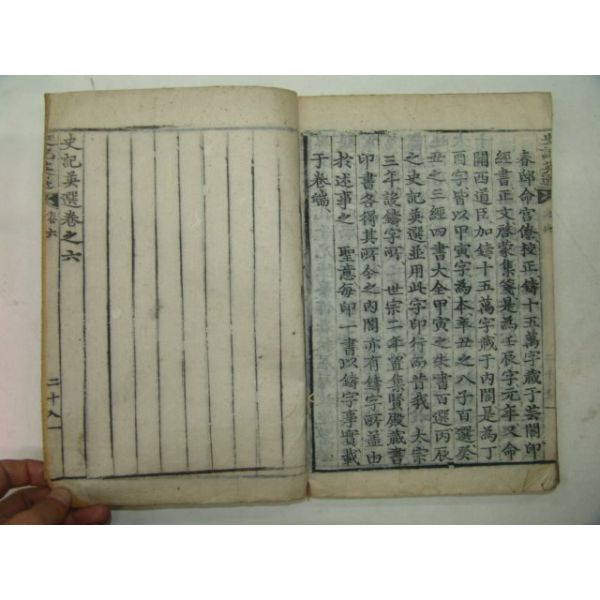 春邸命宮僚校正鑄十五萬字藏于芸閣印
經書正文啓蒙集箋是爲壬辰字元年又命
關西道臣加鑄十五萬字藏于內閣是爲丁
酉字皆以甲寅字爲本辛丑之八子百選癸
丑之三經四書大全甲寅之朱書百選丙辰
之史記英選並用此字印行而昔我 太宗
三年設鑄字所 世宗二年置集賢殿藏書
印書各得其所今之內閣亦有鑄字所盖由
於述事之 聖意每印一書以鑄字事實載
于卷端
史記英選卷之六
卷六
二十八